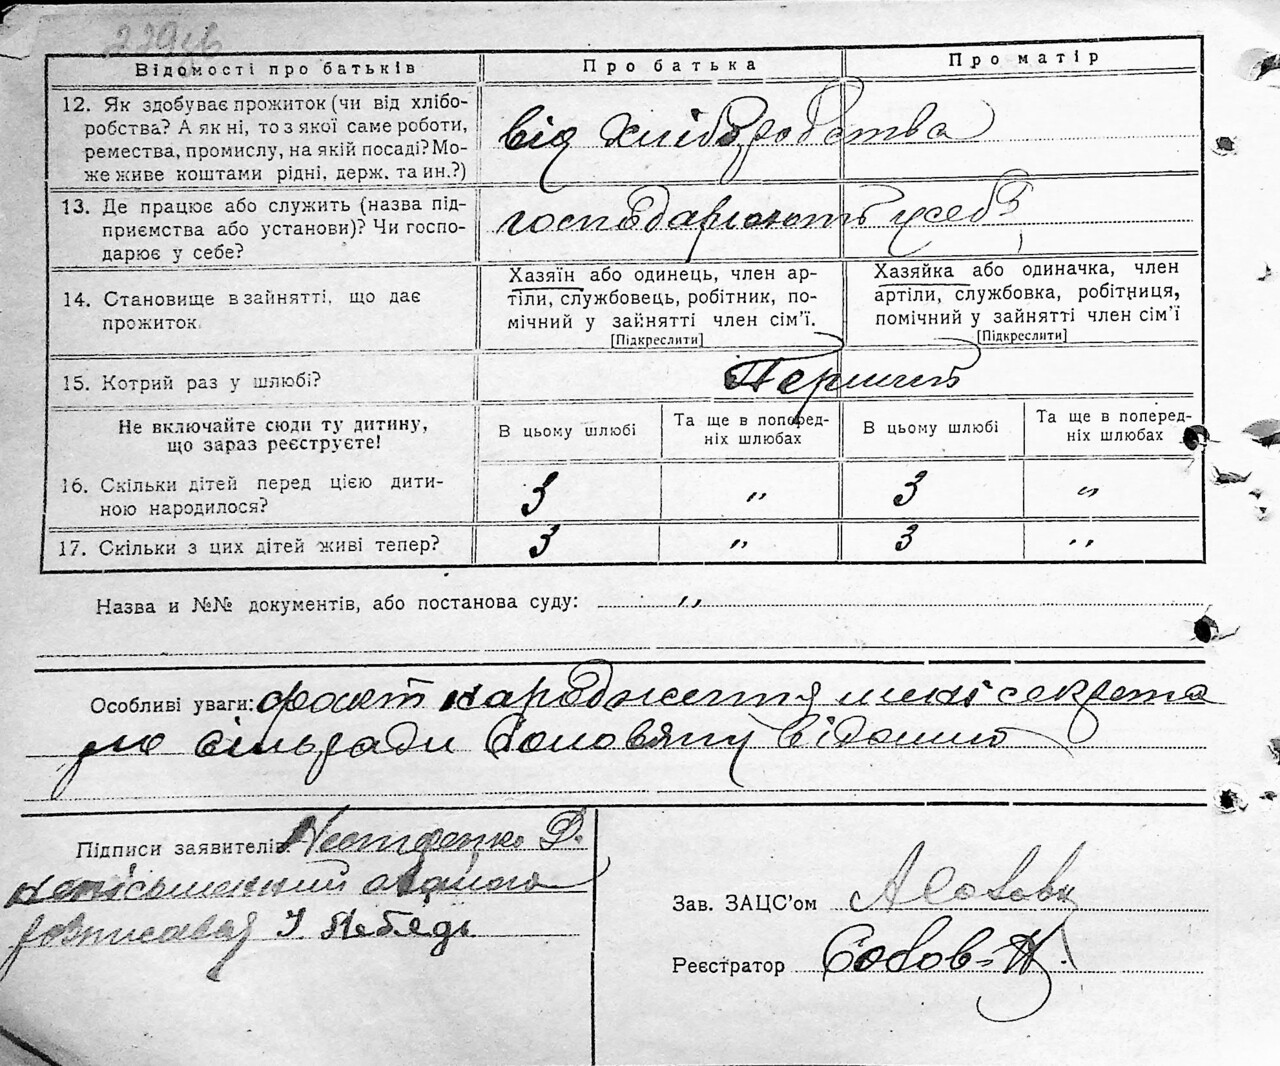 Відомості про батьків Про батька Про матір
12. Як здобуває прожиток (чи від хлібо-
робства? А як ні, то з якої саме роботи,
ремества, промислу, на якій посаді? Мо-
же живе коштами рідні, держ. та ин.?)
від хліборобства
13. Де працює або служить (назва під-
приємства або установи)? Чи госпо-
дарює у себе?
господарюють у себе
14. Становище в зайнятті, що дає
прожиток.
Хазяїн або одинець, член ар-
тіли, службовець, робітник, по-
мічний у зайнятті член сім'ї.
[Підкреслити]
Хазяйка або одиначка, член
артіли, службовка, робітниця,
помічний у зайнятті член сім'ї
[Підкреслити]
15. Котрий раз у шлюбі?
Не включайте сюди ту дитину,
що зараз реєструєте!
В цьому шлюбі
Та ще в поперед-
ніх шлюбах
В цьому шлюбі
Та ще в поперед-
ніх шлюбах
16. Скільки дітей перед цією дити-
ною народилося?
3 " 3 "
17. Скільки з цих дітей живі тепер? 3 " 3 "
Назва и №№ документів, або постанова суду: "
Особливі уваги: факт народження мені секрета
рю сільради відомий
Підписи заявителів: Д.
неписьменний а за нього
розписався І. Лебедь
Зав. ЗАЦС'ом
Реєстратор